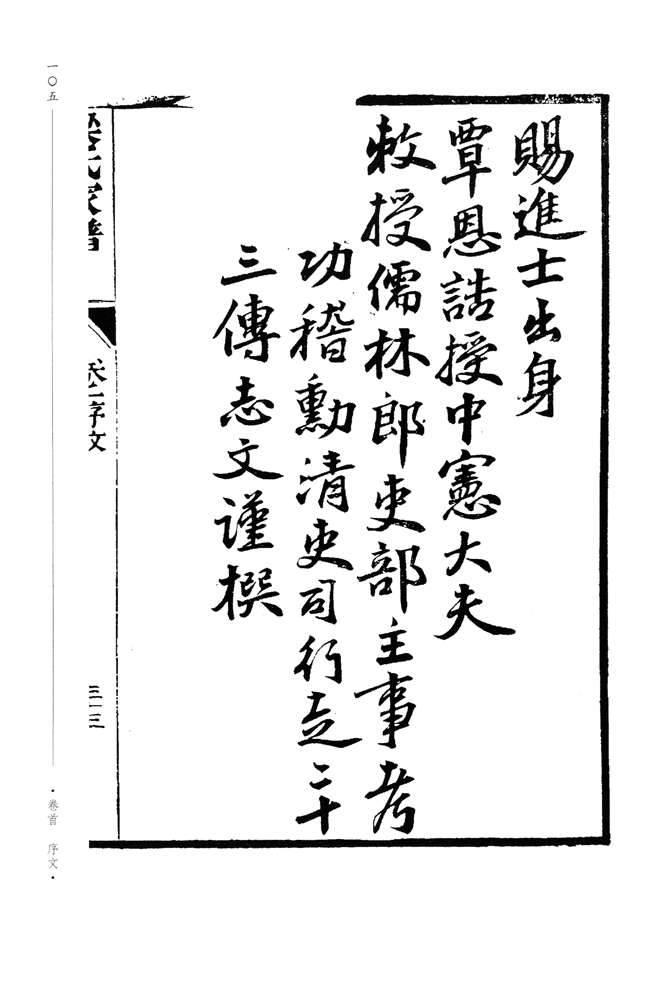 賜進士出身
覃恩誥授中憲大夫
敕授儒林郎吏部主事考
功稽勳清吏司行走二十
三傳志文謹撰
氏家譜
序文
三十三
一〇五
·卷首 序文·